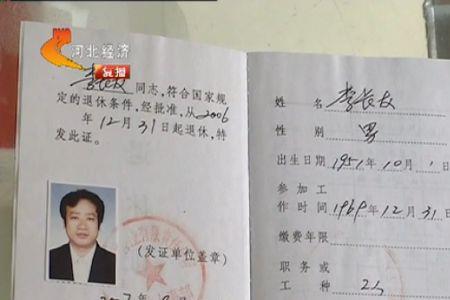 河北经济
重播
李长友同志,符合国家规
定的退休条件,经批准,从2006
年12月31日起退休,特
发此证。
(发证单位盖章)
姓名 李长友
性别 男
出生日期 1951年10月1日
参加工
作时间 1969年12月31日
缴费年限
职务或
工种